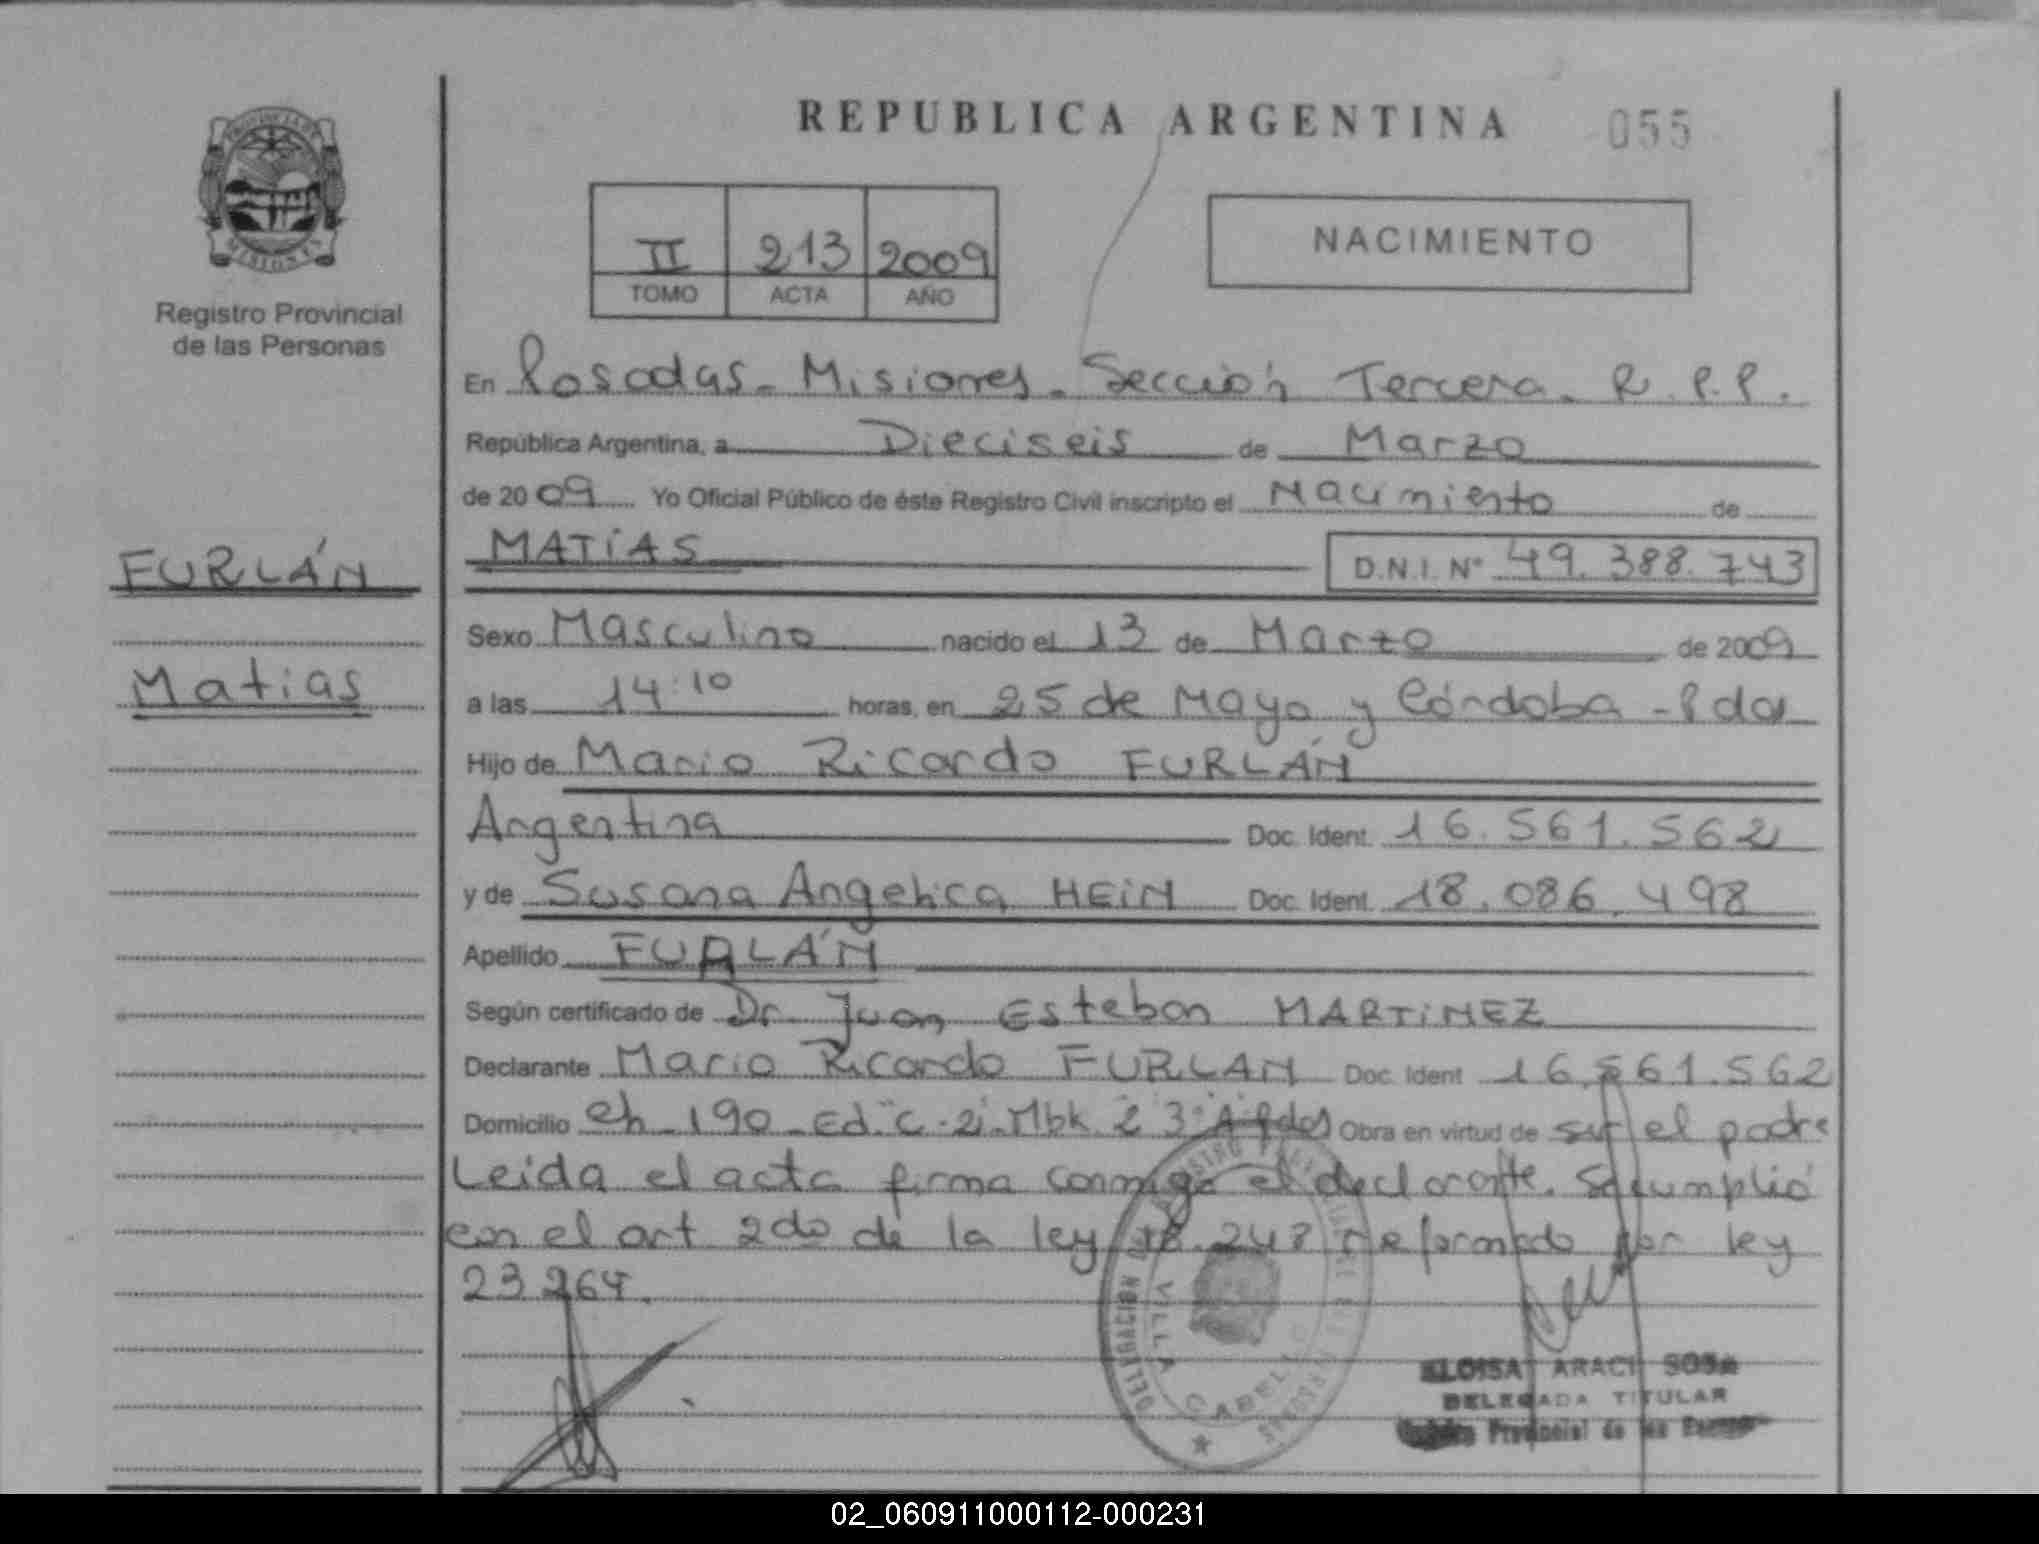 REPUBLICA ARGENTINA 055
PROVINCIA DE
MISIONES
Registro Provincial
de las Personas
II 213 2009
TOMO ACTA AÑO
NACIMIENTO
En Posadas - Misiones - Sección Tercera - R. P. P.
República Argentina, a Dieciseis de Marzo
de 2009 Yo Oficial Público de éste Registro Civil inscripto el Nacimiento de
FURLÁN
MATÍAS D.N.I. Nº 49.388.743
Sexo Masculino nacido el 13 de Marzo de 2009
Matías
a las 14:10 horas, en 25 de Mayo y Córdoba - Pdas
Hijo de Mario Ricardo FURLÁN
Argentina Doc. Ident. 16.561.562
y de Susana Angelica HEIN Doc. Ident. 18.086.498
Apellido FURLÁN
Según certificado de Dr. Juan Esteban MARTINEZ
Declarante Mario Ricardo FURLAN Doc. Ident 16.561.562
Domicilio Ch 190 Ed. "C-2" Mbk 2 3º A Pdas Obra en virtud de ser el padre
Leida el acta firma conmigo el declarante. Se cumplió
con el art 2do de la ley 18.248 reformado por ley
23264.
DELEGACION
VILLA CABELLO
ELOISA ARACI SOSA
DELEGADA TITULAR
Provincial de las
02_060911000112-000231